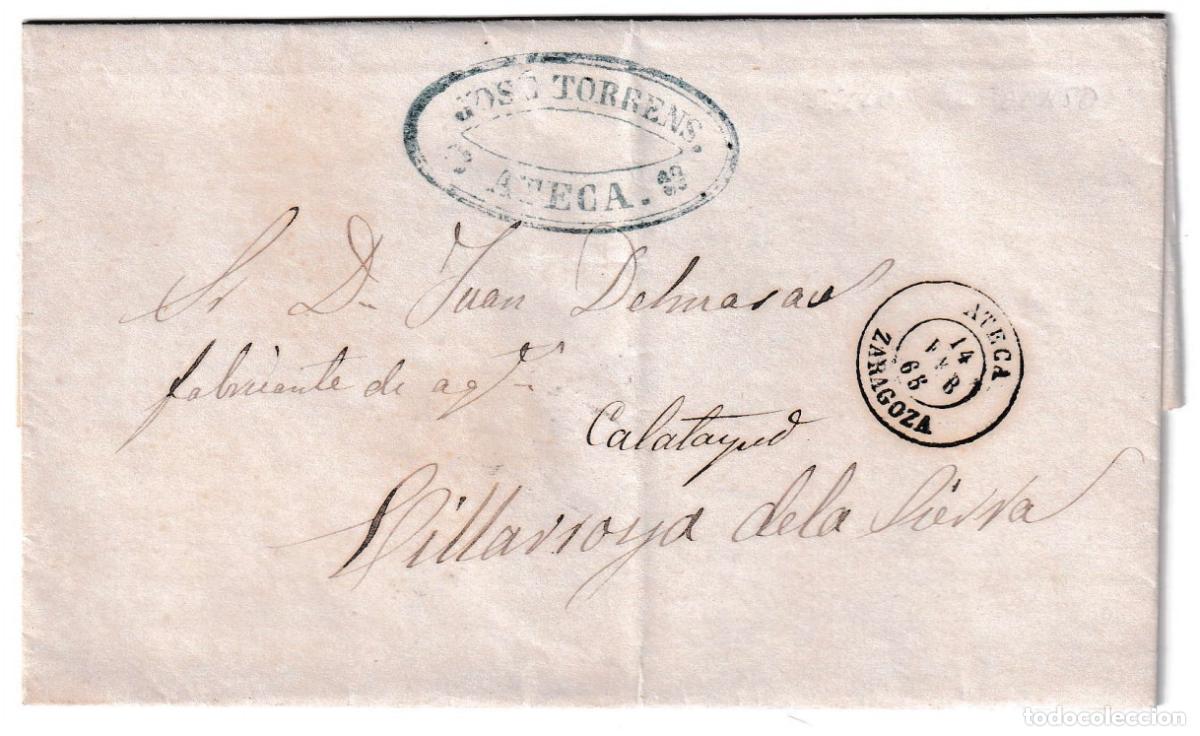 JOSÉ TORRENS.
ATECA.
Sr Dn Juan Delmasau
fabricante de agte
Calatayud
Villarroya dela Sierra
ATECA
14
FEB
66
ZARAGOZA
todocoleccion